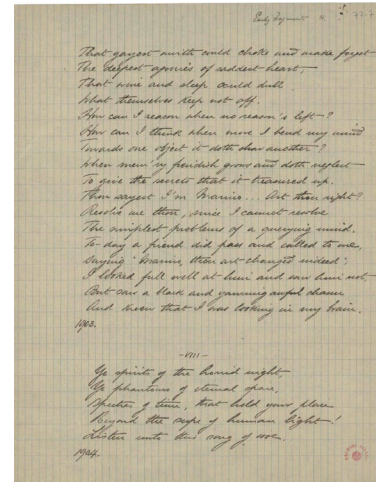 Early Fragment
77-7
That gayest mirth could choke and make forget
The deepest agonies of saddest heart;
That wine and sleep could dull
What themselves keep not off.
How can I reason when no reason's left?
How can I think when more I bend my mind
Towards one object it doth shun another?
When mem'ry fiendish grows and doth neglect
To give the secrets that it treasured up.
Thou sayest I'm Marino... Art thou right?
Resolve me then, since I cannot resolve
The simplest problems of a querying mind.
To-day a friend did pass and called to me,
Saying "Marino, thou art changed indeed";
I looked full well at him and saw him not,
But saw a black and yawning awful chasm
And knew that I was looking in my brain.
1903.
-VIII-
Ye spirits of the horrid night,
Ye phantoms of eternal space,
Spectres of time, that hold your place
Beyond the rays of human light!
Listen unto this song of woe.
1904.